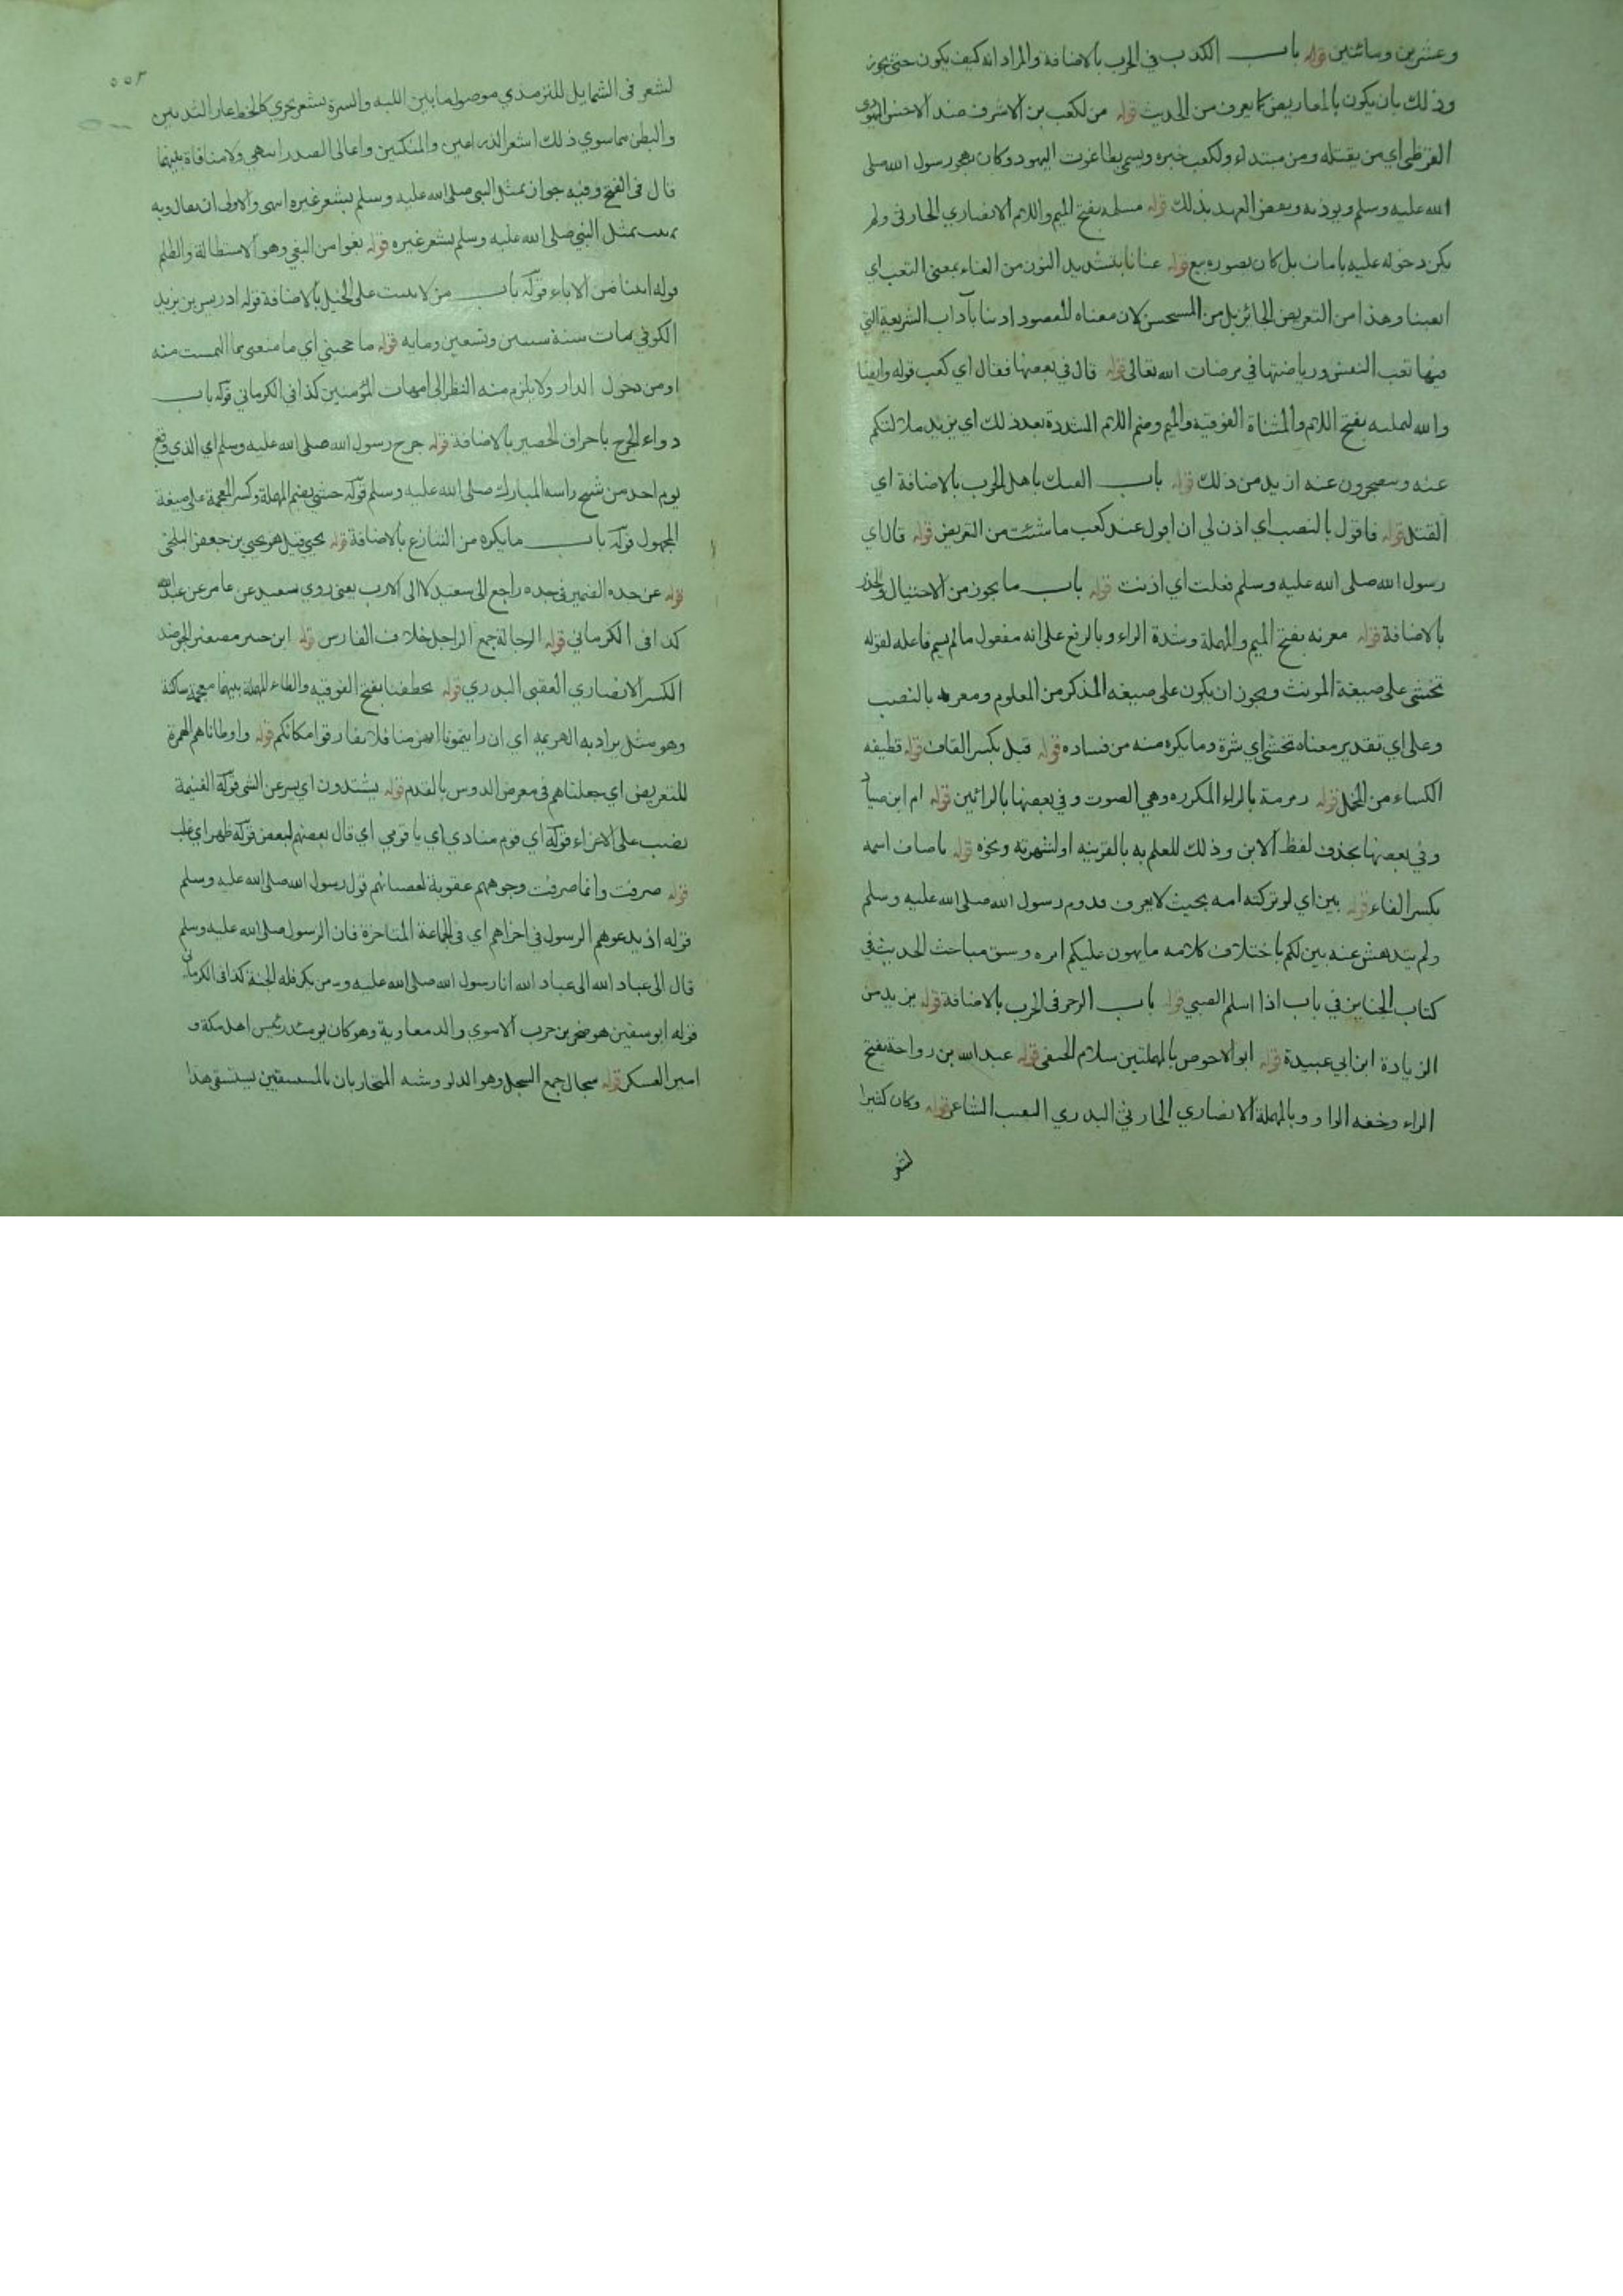 وعشرين ومائتين قوله باب الكذب في الحرب بالاضافة والمراد انه كيف يكون حتى يجوز
وذلك بان يكون بالمعاريض كما يعرف من الحديث قوله من لكعب بن الاشرف ضد الاخس اليهودي
القرظي اي من يقتله ومن مبتداء ولكعب خبره ويسمى بطاغوت اليهود وكان يهجو رسول الله صلى
الله عليه وسلم ويوذيه ونقض العهد بذلك قوله مسلمه بفتح الميم واللام الانصاري الحارثي ولم
يكن دخوله عليه بامان بل كان بصوره بيع قوله عنانا بتشديد النون من العناء بمعنى التعب اي
اتعبنا وهذا من التعريض الجائز بل من المستحسن لان معناه المقصود ادبنا بآداب الشريعة التي
فيها تعب النفس ورياضتها في مرضات الله تعالى قوله قال في بعضها فقال اي كعب قوله وايضا
والله لتملنه بفتح اللام والمثناة الفوقية والميم وضم اللام المشددة بعد ذلك اي يزيد ملالتكم
عنه وستضجرون عنه ازيد من ذلك قوله باب الفتك باهل الحرب بالاضافة اي
القتل قوله فاقول بالنصب اي اذن لي ان اقول عند كعب ما شئت من التعريض قوله قال اي
رسول الله صلى الله عليه وسلم فعلت اي اذنت قوله باب ما يجوز من الاحتيال والحذر
بالاضافة قوله معرته بفتح الميم والمهملة وشدة الراء وبالرفع على انه مفعول ما لم يسم فاعله لقوله
تخشى على صيغة المونث ويجوز ان يكون على صيغه المذكر من المعلوم ومعرته بالنصب
وعلى اي تقدير معناه تخشى اي شرة وما يكره منه من فساده قوله قبل بكسر القاف قوله قطيفه
الكساء من الخمل قوله رمرمة بالراء المكرره وهي الصوت وفي بعضها بالزائين قوله ام ابن صياد
وفي بعضها بحذف لفظ الابن وذلك للعلم به بالقرينه او لشهرته ونحوه قوله ياصاف اسمه
بكسر الفاء قوله بين اي لو تركته امه بحيث لا يعرف قدوم رسول الله صلى الله عليه وسلم
ولم يندهش عنه بين لكم باختلاف كلامه ما يهون عليكم امره وسبق مباحث الحديث في
كتاب الجنايز في باب اذا اسلم الصبي قوله باب الرجز في الحرب بالاضافة قوله يزيد من
الزيادة ابن ابي عبيدة قوله ابو الاحوص بالمهملتين سلام الحنفي قوله عبد الله بن رواحة بفتح
الراء وخفه الواو وبالمهملة الانصاري الحارثي البدري النقيب الشاعر قوله وكان كثيرا
لشعر
٥٥٢
لشعر في الشمايل للترمذي موصول ما بين اللبه والسرة بشعر يجري كالخط عار الثديين
والبطن مما سوي ذلك اشعر الذراعين والمنكبين واعالى الصدر انتهى ولا منافاة بينهما
قال في الفتح وفيه جواز تمثل النبي صلى الله عليه وسلم بشعر غيره انتهى والاولى ان يقال وبه
تمثل النبي صلى الله عليه وسلم بشعر غيره قوله بغوا من البغي وهو الاستطالة والظلم
قوله ابينا من الاباء قوله باب من لا يثبت على الخيل بالاضافة قوله ادريس بن يزيد
الكوفي مات سنة وتسعين ومايه قوله ما حجبني اي ما منعني مما التمست منه
او من دخول الدار ولا يلزم منه النظر الى امهات المؤمنين كذا في الكرماني قوله باب
دواء الجرح باحراق الحصير بالاضافة قوله جرح رسول الله صلى الله عليه وسلم اي الذي وقع
يوم احد من شج راسه المبارك صلى الله عليه وسلم قوله حشي بضم المهملة وكسر المعجمة على صيغة
المجهول قوله باب ما يكره من التنازع بالاضافة قوله يحيى قيل هو يحيى بن جعفر البلخي
قوله عن جده الضمير في جده راجع الى سعيد لا الى الاب يعني روي سعيد عن عامر عن عبد الله
كذا في الكرماني قوله الرجالة جمع الراجل خلاف الفارس قوله ابن جبير مصغر الجبر ضد
الكسر الانصاري العقبي البدري قوله تخطفنا بفتح الفوقيه والطاء المهملة بينهما معجمة ساكنة
وهو مثل يراد به الهزيمه اي ان رايتمونا انهزمنا فلا تفارقوا مكانكم قوله واوطاناهم الهمزة
للتعريض اي جعلناهم في معرض الدوس بالقدم قوله يشتدون اي يسرعن المشي قوله الغنيمة
نصب على الاغراء قوله اي قوم منادي اي يا قومي اي قال بعضهم لبعض قوله ظهر اي غلب
قوله صرفت وانما صرفت وجوههم عقوبة لعصيانهم قول رسول الله صلى الله عليه وسلم
قوله اذ يدعوهم الرسول في اخراهم اي في الجماعة المتاخرة فان الرسول صلى الله عليه وسلم
قال الى عباد الله الى عباد الله انا رسول الله صلى الله عليه و من يكر فله الجنة كذا في الكرماني
قوله ابو سفين هو صخر بن حرب الاموي والد معاوية وهو كان يومئذ رئيس اهل مكة و
امير العسكر قوله سجال جمع السجل وهو الدلو وشبه المتحاربان بالمستقيين يستسقي هذا